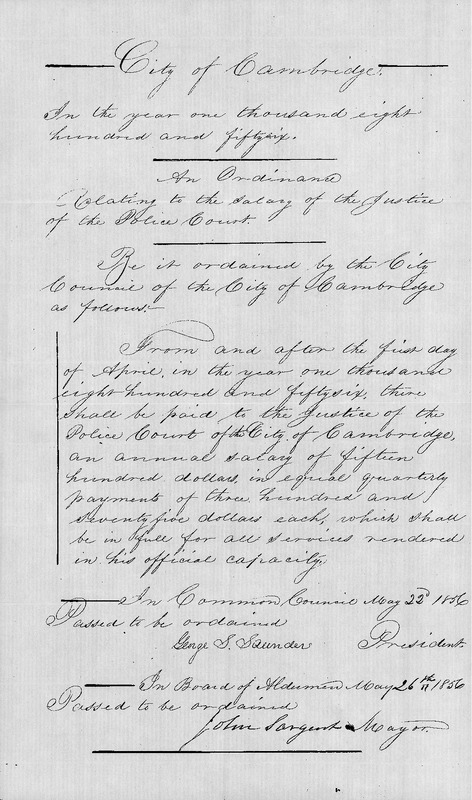 City of Cambridge.
In the year one thousand eight
hundred and fiftysix.
An Ordinance
Relating to the salary of the Justice
of the Police Court.
Be it ordained by the City
Council of the City of Cambridge
as follows:-
From and after the first day
of April, in the year one thousand
eight hundred and fiftysix, there
shall be paid to the Justice of the
Police Court of the City of Cambridge,
an annual salary of fifteen
hundred dollars, in equal quarterly
payments of three hundred and
seventy five dollars each, which shall
be in full for all services rendered
in his official capacity.
In Common Council May 22d 1856
Passed to be ordained
George S. Saunder President.
In Board of Aldermen May 26th 1856
Passed to be ordained
John Sargent Mayor.